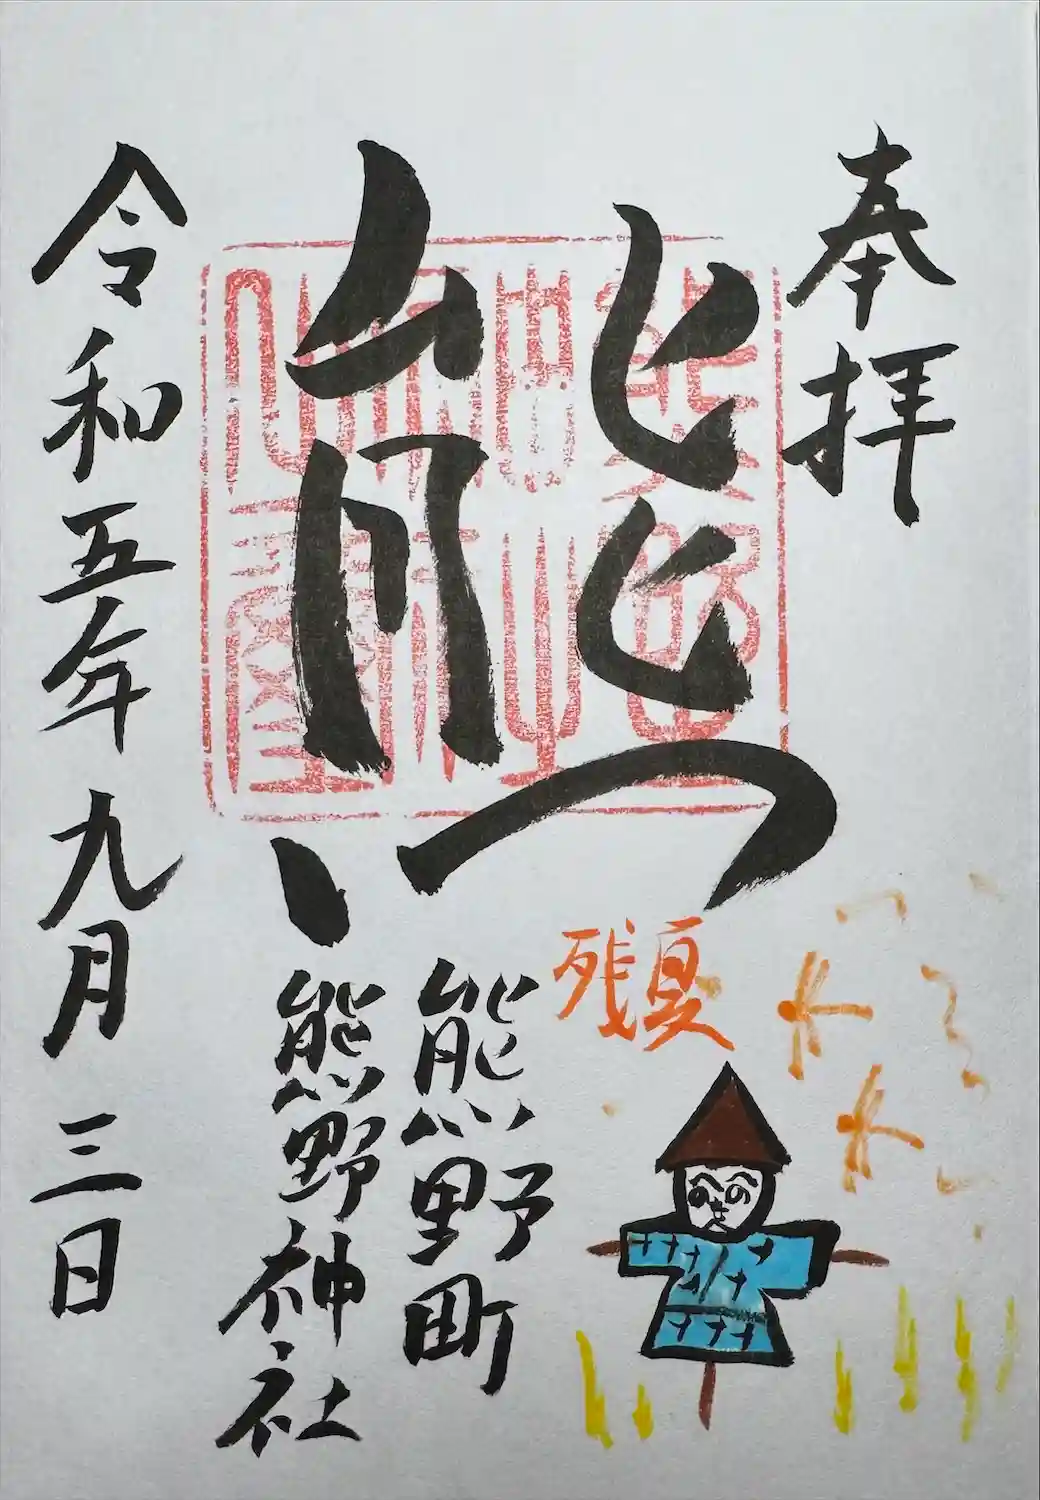 奉拝
熊
残夏
熊野町
熊野神社
令和五年九月三日